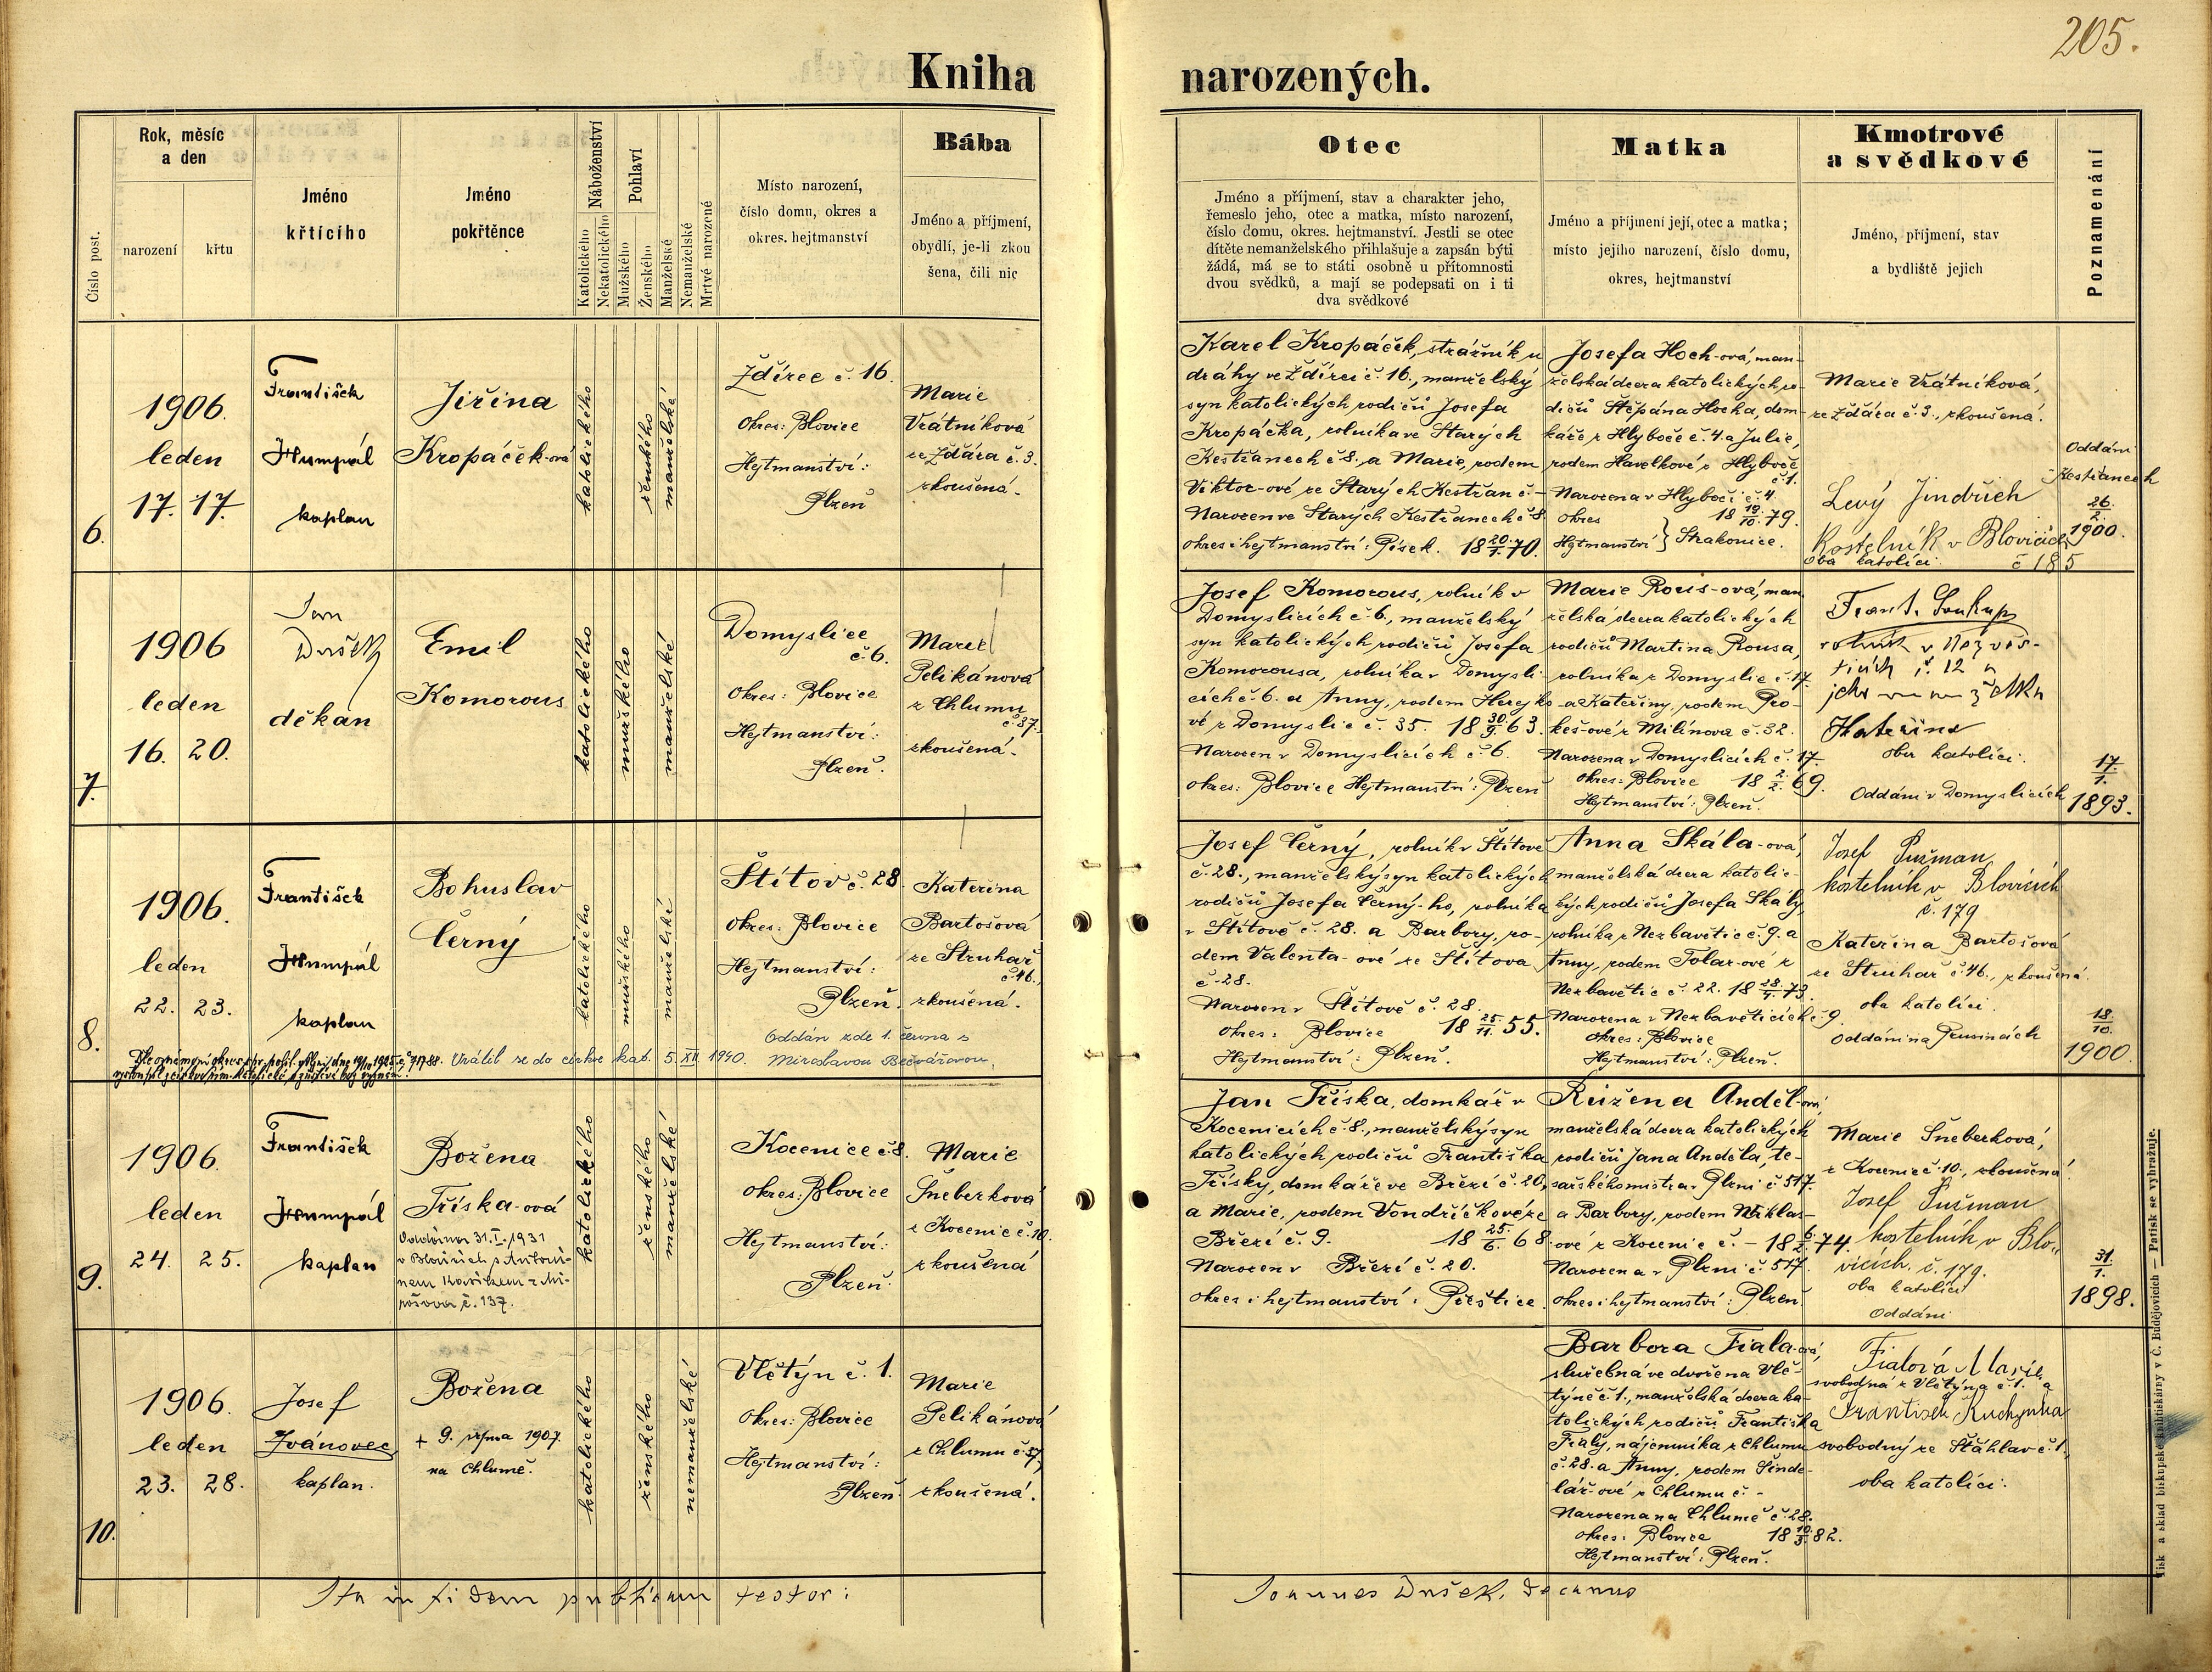 205.
Kniha narozených.
Číslo post.
Rok, měsíc
a den
narození
křtu
Jméno
křtícího
Jméno
pokřtěnce
Náboženství
Katolického
Nekatolického
Pohlaví
Mužského
Ženského
Manželské
Nemanželské
Mrtvě narozené
Místo narození,
číslo domu, okres a
okres. hejtmanství
Bába
Jméno a příjmení,
obydlí, je-li zkou
šena, čili nic
Otec
Jméno a příjmení, stav a charakter jeho,
řemeslo jeho, otec a matka, místo narození,
číslo domu, okres. hejtmanství. Jestli se otec
dítěte nemanželského přihlašuje a zapsán býti
žádá, má se to státi osobně u přítomnosti
dvou svědků, a mají se podepsati on i ti
dva svědkové
Matka
Jméno a příjmení její, otec a matka;
místo jejího narození, číslo domu,
okres, hejtmanství
Kmotrové
a svědkové
Jméno, příjmení, stav
a bydliště jejich
Poznamenání
6.
1906.
leden
17. 17.
František
Humpál
kaplan
Jiřina
Kropáček-ová
katolického
ženského
manželské
Ždírec č. 16.
Okres: Blovice
Hejtmanství:
Plzeň
Marie
Vrátníková
ze Ždára č. 3.
zkoušená.
Karel Kropáček, strážník u
dráhy ve Ždírci č. 16., manželský
syn katolických rodičů Josefa
Kropáčka, rolníka ve Starých
Kestřanech č. 8., a Marie, rodem
Viktor-ové ze Starých Kestřan č. -
Narozen ve Starých Kestřanech č. 8
okres i hejtmanství: Písek. 18 20/1. 70.
Josefa Hoch-ová, man-
želská dcera katolických ro-
dičů Štěpána Hocha, dom-
káře z Hlyboče č. 4. a Julie,
rodem Havelkové z Hlyboče
č. 1.
Narozena v Hlyboči č. 4.
okres 18 19/10. 79.
Hejtmanství } Strakonice.
Marie Vrátníková,
ze Ždára č. 3., zkoušená.
Levý Jindřich
Kostelník v Blovicích
č 185
oba katolíci
Oddáni
Kestřanech
26./2.
1900.
7.
1906
leden
16. 20.
Jan
Dušek
děkan
Emil
Komorous
katolického
mužského
manželské
Domyslice
č. 6.
Okres: Blovice
Hejtmanství:
Plzeň.
Marie
Pelikánová
z Chlumu
č. 37.
zkoušená.
Josef Komorous, rolník v
Domyslicích č. 6., manželský
syn katolických rodičů Josefa
Komorousa, rolníka v Domysli-
cích č. 6. a Anny, rodem Herejko-
vé z Domyslic č. 35. 18 30/9. 63.
Narozen v Domyslicích č. 6.
okres: Blovice Hejtmanství: Plzeň
Marie Rous-ová, man
želská dcera katolických
rodičů Martina Rousa,
rolníka z Domyslic č. 17.
a Kateřiny, rodem Pro-
keš-ové z Milínova č. 32.
Narozena v Domyslicích č. 17.
okres: Blovice 18 2./2. 69.
Hejtmanství: Plzeň.
Frant. Soukup
rolník v Nezvěs-
ticích č. 12 a
jeho manželka
Kateřina
oba katolíci.
Oddáni v Domyslicích
17./1.
1893.
8.
1906.
leden
22. 23.
František
Humpál
kaplan
Bohuslav
Černý
katolického
mužského
manželské
Štítov č. 28.
Okres: Blovice
Hejtmanství:
Plzeň.
Kateřina
Bartošová
ze Struhař
č. 46.,
zkoušená.
Oddán zde 1. června s
Miroslavou Bečvářovou.
Vrátil se do církve kat. 5. XII. 1940.
Josef Černý, rolník v Štítově
č. 28., manželský syn katolických
rodičů Josefa Černý-ho, rolníka
v Štítově č. 28. a Barbory, ro-
dem Valenta-ové ze Štítova
č. 28.
Narozen v Štítově č. 28.
okres: Blovice 18 25./11. 55.
Hejtmanství: Plzeň.
Anna Skála-ová,
manželská dcera katolic-
kých rodičů Josefa Skály,
rolníka z Nezbavětic č. 9. a
Anny, rodem Tolar-ové z
Nezbavětic č. 22. 18 28./7. 73.
Narozena v Nezbavěticích č. 9.
okres: Blovice
Hejtmanství: Plzeň.
Josef Pužman,
kostelník v Blovicích
č. 179
Kateřina Bartošová
ze Struhař č. 46., zkoušená
oba katolíci
Oddáni na Prusinách
18/10.
1900.
9.
1906.
leden
24. 25.
František
Humpál
kaplan
Božena
Tříska-ová
Oddána 31. I. 1931
v Blovicích s Antoní-
nem
č. 137.
katolického
ženského
manželské
Kocenice č. 8.
Okres: Blovice
Hejtmanství:
Plzeň.
Marie
Šneberková
z Kocenic č. 10.
zkoušená
Jan Tříska, domkář v
Kocenicích č. 8., manželský syn
katolických rodičů Františka
Třísky, domkáře ve Březí č. 20,
a Marie, rodem Vondříčkové ze
Březí č. 9. 18 25./6. 68.
Narozen v Březí č. 20.
okres i hejtmanství: Přeštice.
Růžena Anděl-ová
manželská dcera katolických
rodičů Jana Anděla, te-
sařského mistra v Plzni č. 517.
a Barbory, rodem Miklas-
ové z Kocenic č. - 18 6./2. 74.
Narozena v Plzni č. 517.
okres i hejtmanství: Plzeň.
Marie Šneberková,
z Kocenic č. 10., zkoušená.
Josef Pužman
kostelník v Blo-
vicích. č. 179.
oba katolíci
Oddáni
31./1.
1898.
10.
1906.
leden
23. 28.
Josef
Ivánovec
kaplan.
Božena
+ 9. října 1907.
na Chlumě.
katolického
ženského
nemanželské
Vlčtýn č. 1.
Okres: Blovice
Hejtmanství:
Plzeň.
Marie
Pelikánová
z Chlumu č. 37,
zkoušená.
Barbora Fiala-ová,
služebná ve dvoře na Vlč-
týně č. 1., manželská dcera ka-
tolických rodičů Františka
Fialy, nájemníka z Chlumu
č. 28. a Anny, rodem Šinde-
lář-ové z Chlumu č. -
Narozena na Chlumě č. 28.
okres: Blovice 18 10./3. 82.
Hejtmanství: Plzeň.
Fialová Marie,
svobodná z Vlčtýna č. 1. a
František Kuchynka
svobodný ze Šťáhlav č. 1,
oba katolíci.
Ita in fidem publicam testor:
Joannes Dušek, decanus
Tisk a sklad biskupské knihtiskárny v Č. Budějovicích — Patisk se vyhražuje.